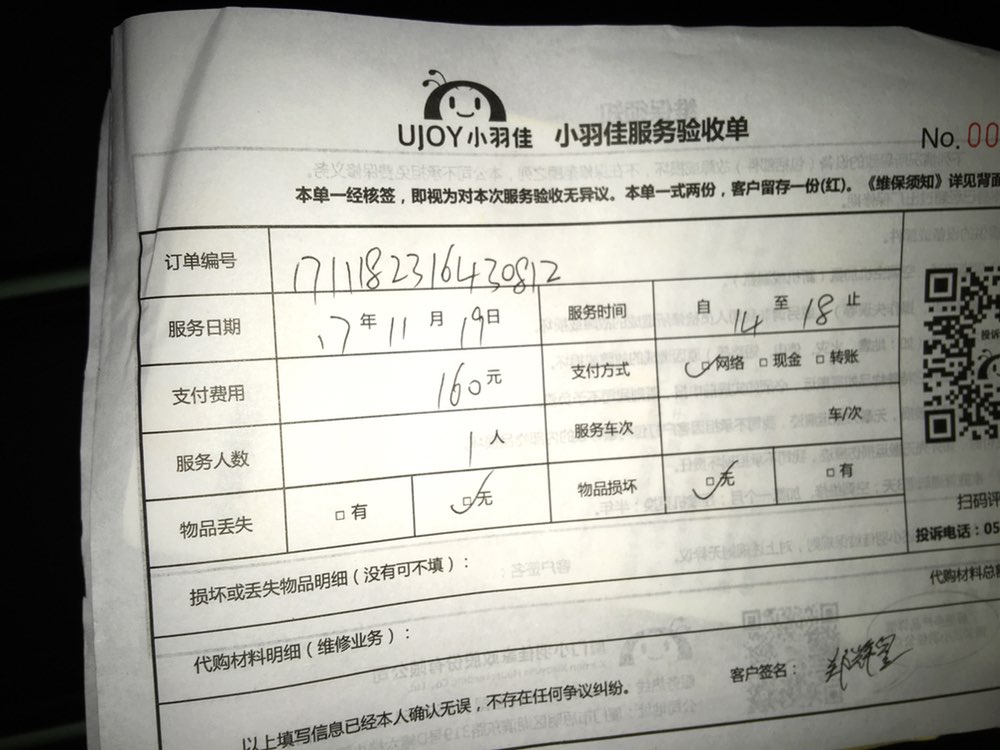 UJOY小羽佳 小羽佳服务验收单
No. 00
本单一经核签，即视为对本次服务验收无异议。本单一式两份，客户留存一份(红)。《维保须知》详见背面
订单编号 1711182316430812
服务日期 17年11月19日 服务时间 自14至18止
支付费用 160元 支付方式 网络 现金 转账
服务人数 1人 服务车次 车/次
物品丢失 有 无 物品损坏 无 有
扫码评
投诉电话：05
损坏或丢失物品明细（没有可不填）：
代购材料总
代购材料明细（维修业务）：
客户签名：
以上填写信息已经本人确认无误，不存在任何争议纠纷。